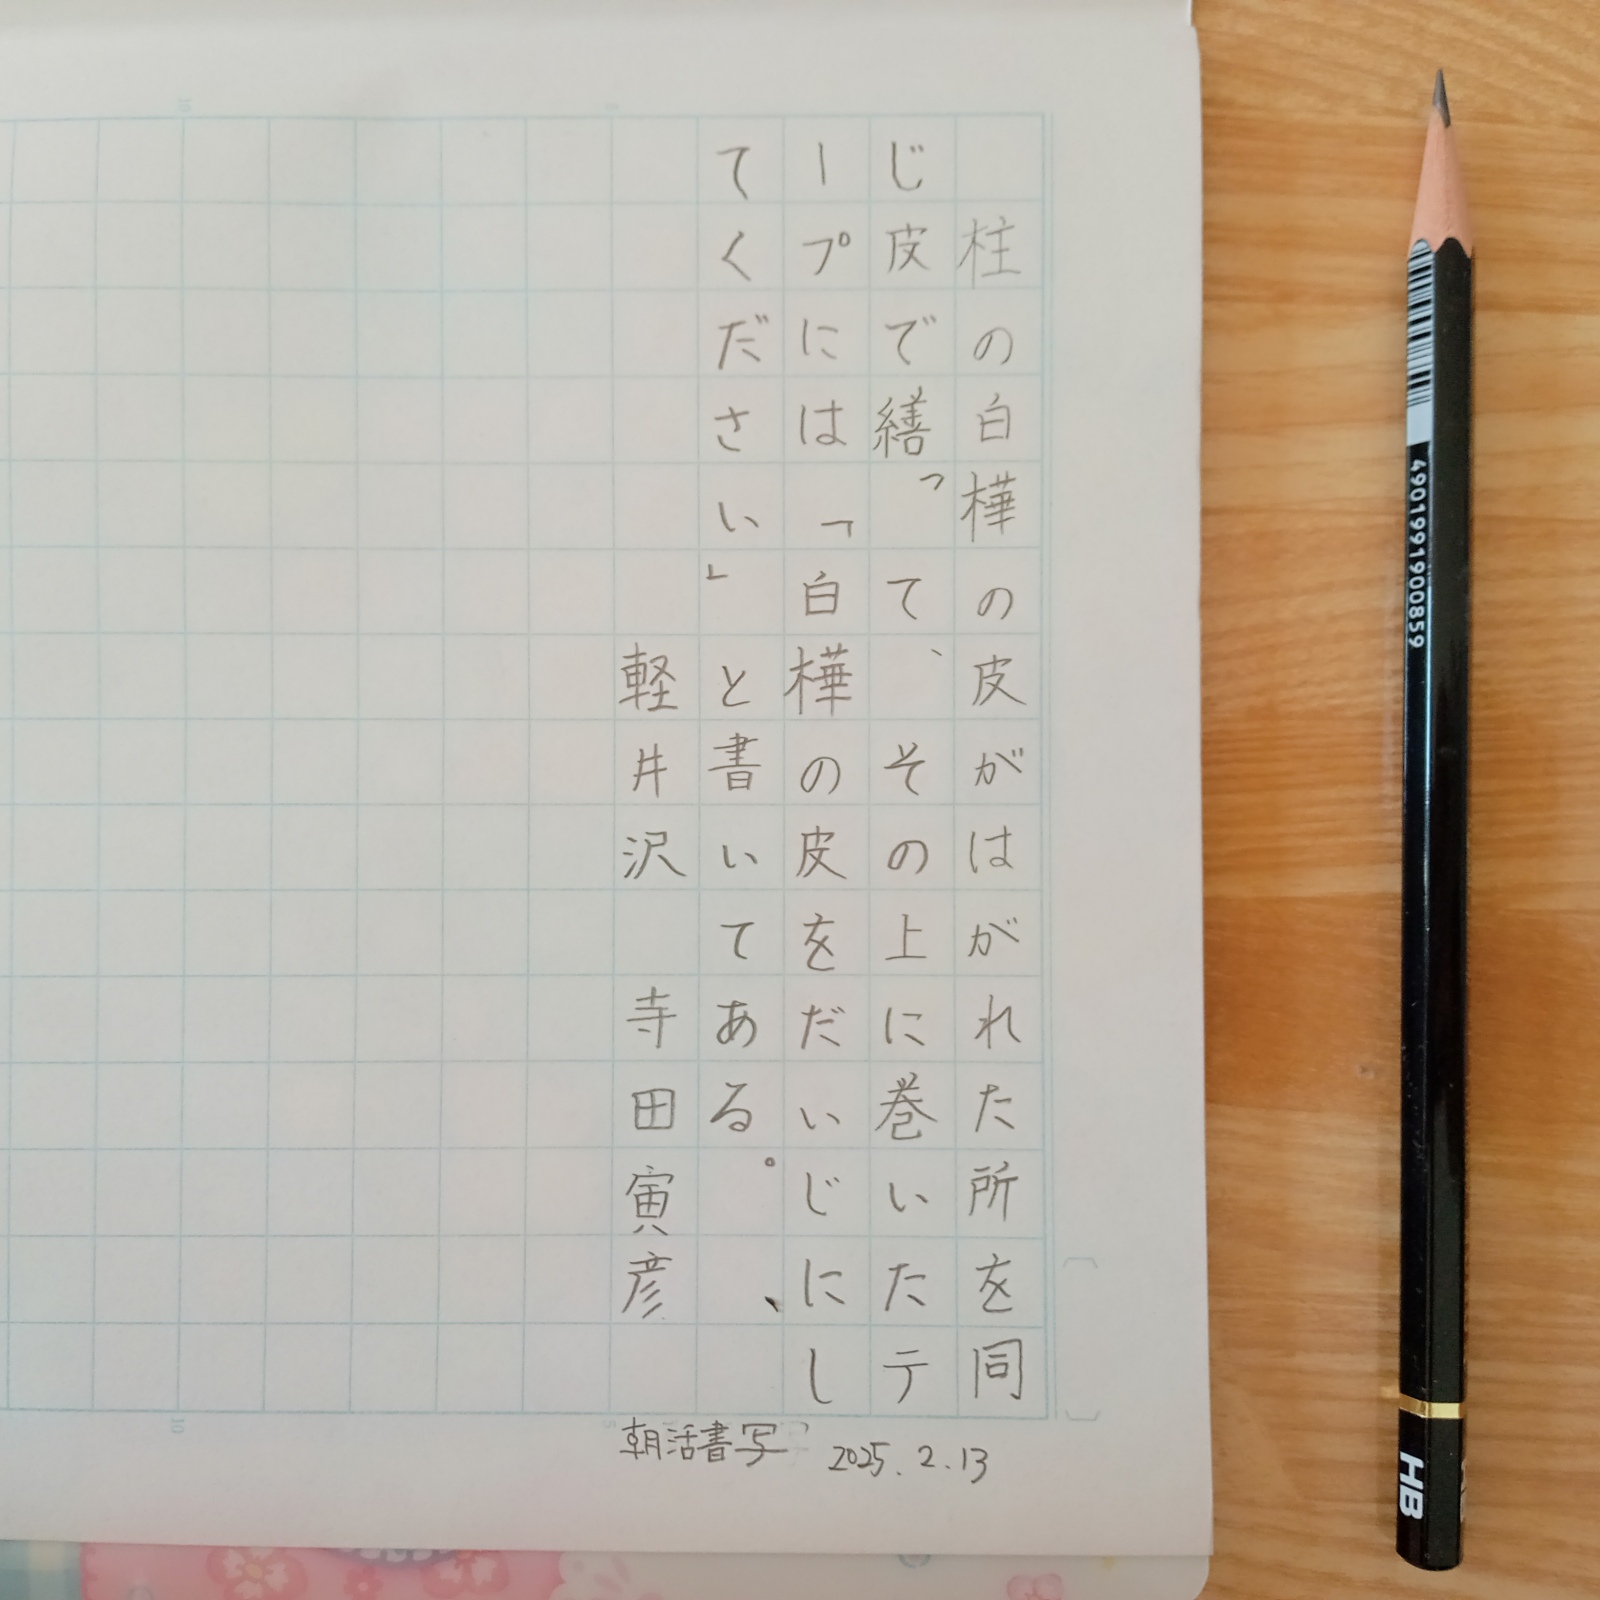 柱の白樺の皮がはがれた所を同
じ皮で繕って、その上に巻いたテ
ープには「白樺の皮をだいじにし
てください」と書いてある。
軽井沢 寺田寅彦
朝活書写 2025.2.13
4901991900859
HB